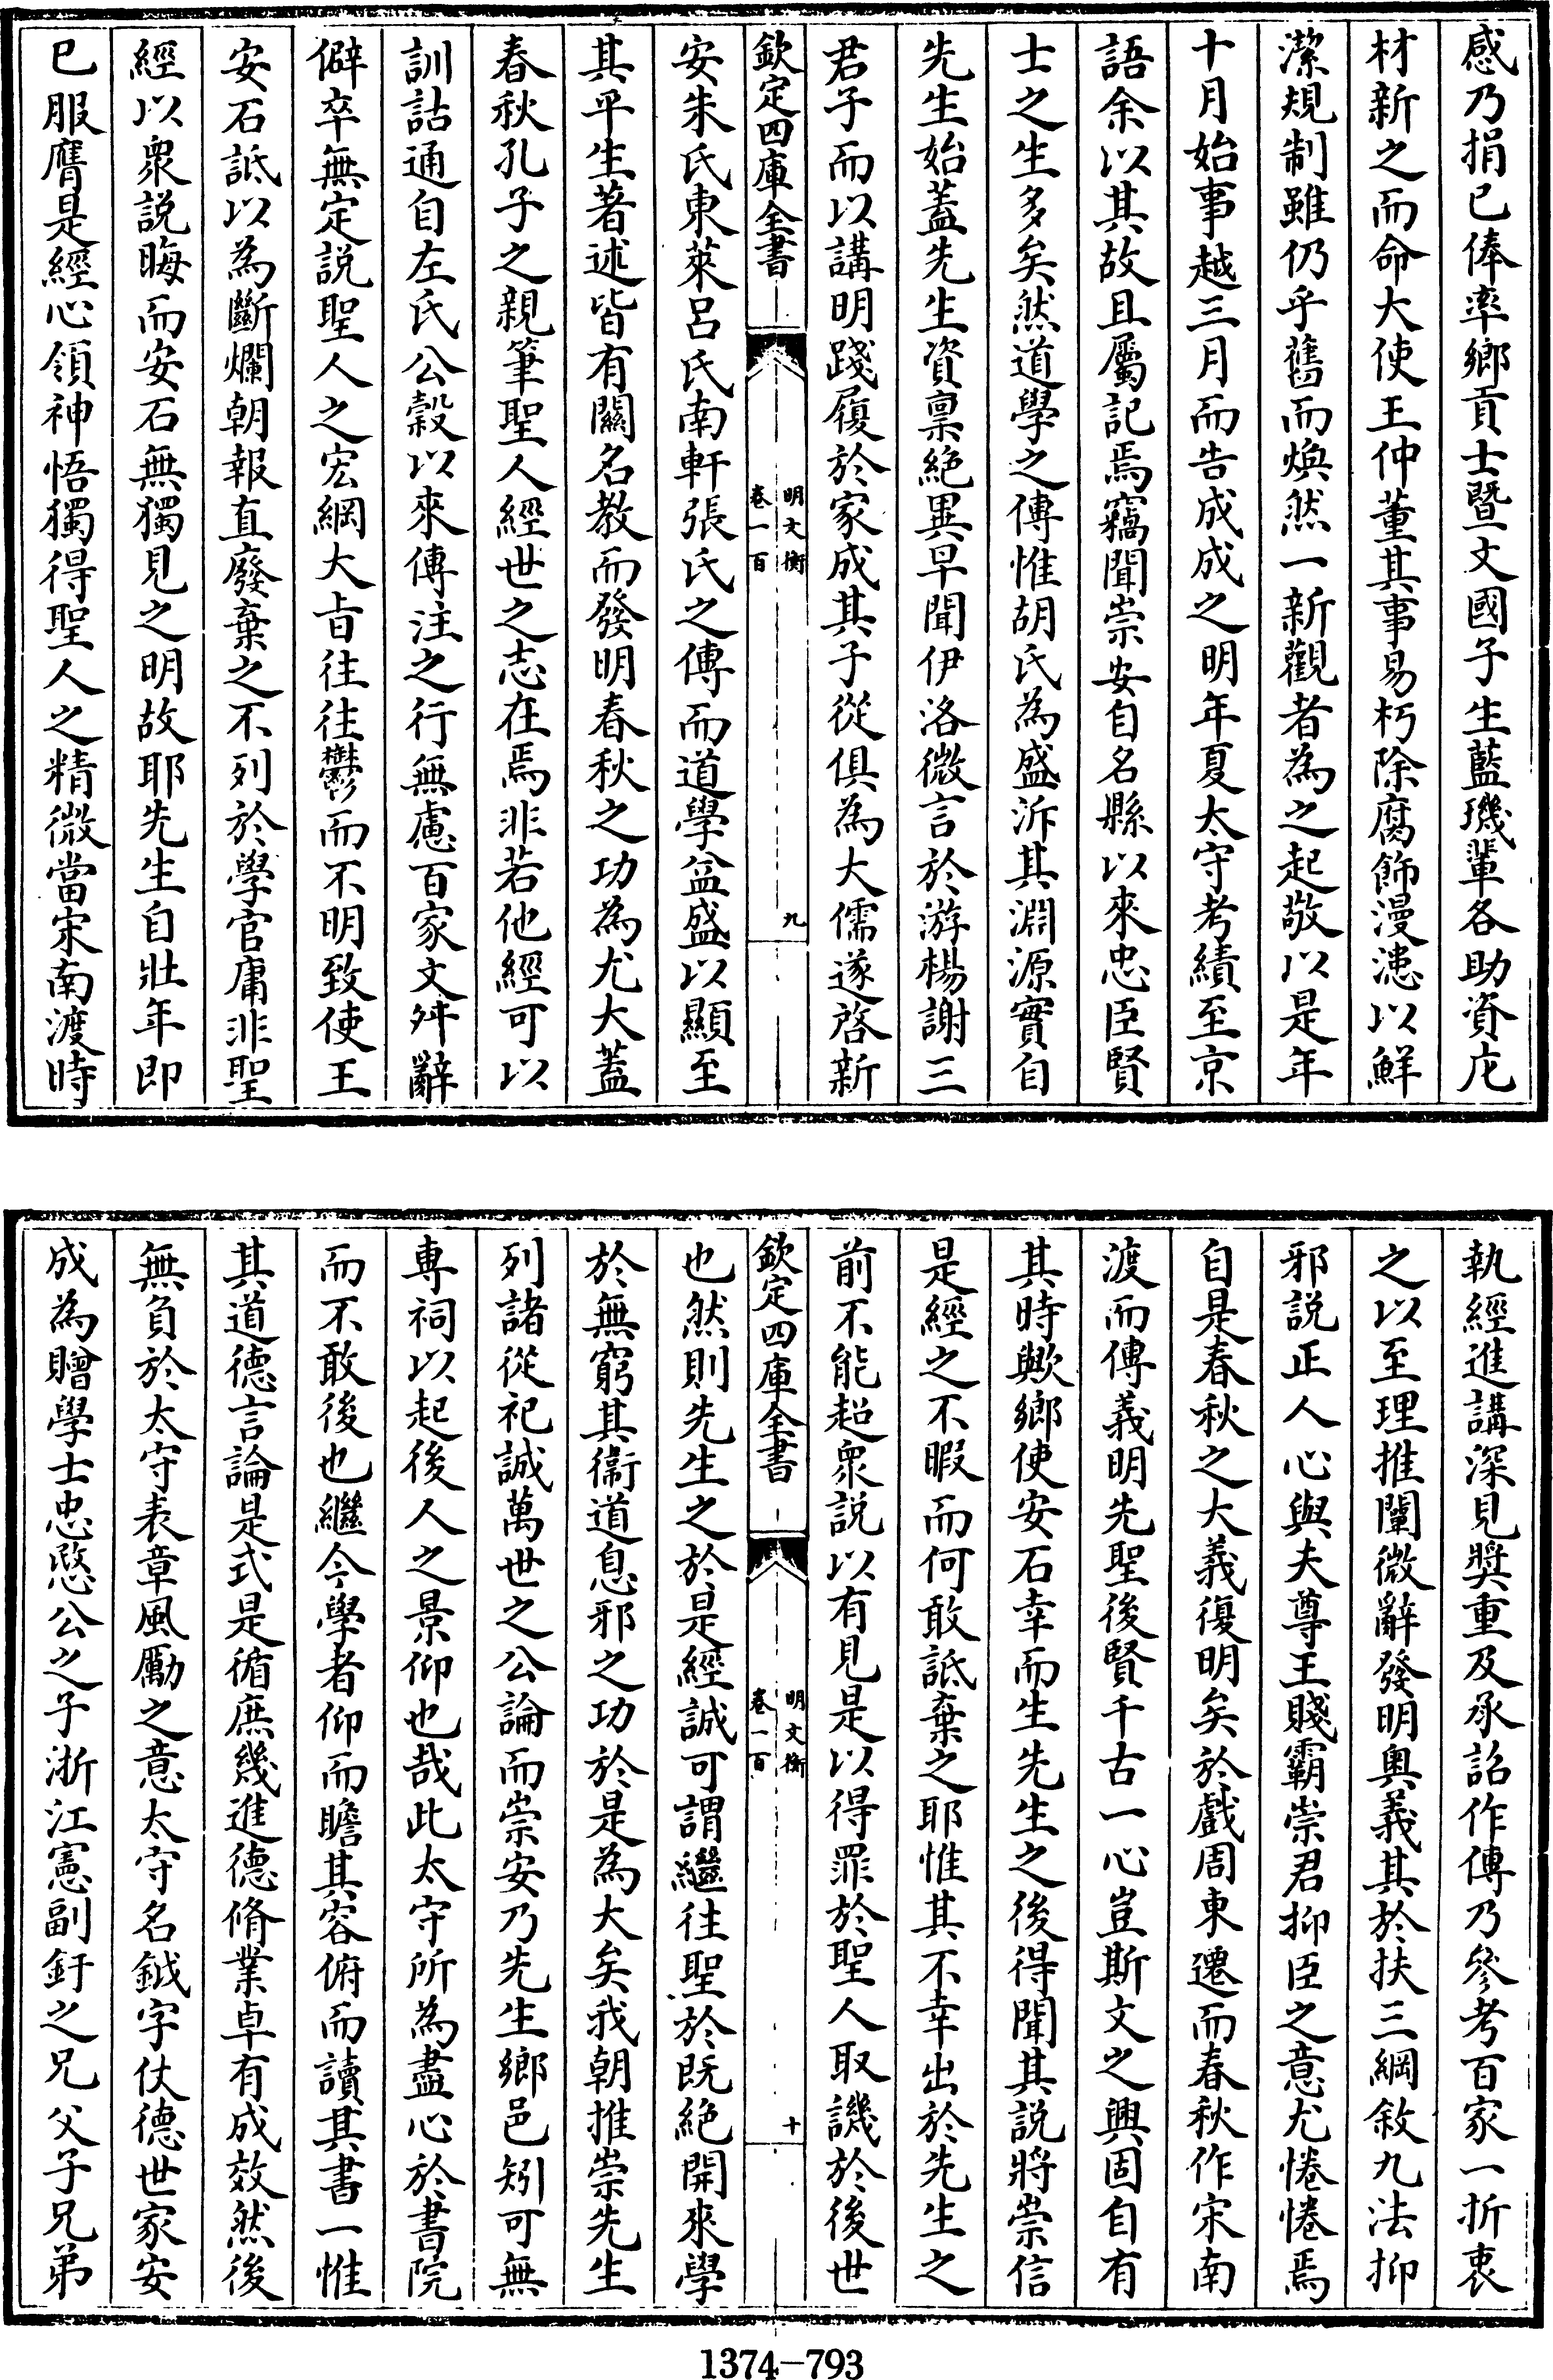 感乃捐已俸率鄉貢士暨文國子生藍璣輩各助資庀
材新之而命大使王仲董其事易朽除腐飾漫漶以鮮
潔規制雖仍乎舊而煥然一新觀者為之起敬以是年
十月始事越三月而告成成之明年夏太守考績至京
語余以其故且屬記焉竊聞崇安自名縣以來忠臣賢
士之生多矣然道學之傳惟胡氏為盛泝其淵源實自
先生始蓋先生資禀絶異早聞伊洛微言於游楊謝三
君子而以講明踐履於家成其子從俱為大儒遂啓新
欽定四庫全書
明文衡
卷一百
九
安朱氏東萊呂氏南軒張氏之傳而道學益盛以顯至
其平生著述皆有關名教而發明春秋之功為尤大蓋
春秋孔子之親筆聖人經世之志在焉非若他經可以
訓詁通自左氏公穀以來傳注之行無慮百家文舛辭
僻卒無定説聖人之宏綱大㫖往往鬱而不明致使王
安石詆以為斷爛朝報直廢棄之不列於學官庸非聖
經以衆説晦而安石無獨見之明故耶先生自壯年即
已服膺是經心領神悟獨得聖人之精微當宋南渡時
執經進講深見奬重及承詔作傳乃參考百家一折衷
之以至理推闡微辭發明奥義其於扶三綱敘九法抑
邪説正人心與夫尊王賤霸崇君抑臣之意尤惓惓焉
自是春秋之大義復明矣於戲周東遷而春秋作宋南
渡而傳義明先聖後賢千古一心豈斯文之興固自有
其時歟鄉使安石幸而生先生之後得聞其説將崇信
是經之不暇而何敢詆棄之耶惟其不幸出於先生之
前不能超衆説以有見是以得罪於聖人取譏於後世
欽定四庫全書
明文衡
卷一百
十
也然則先生之於是經誠可謂繼往聖於既絶開來學
於無窮其衞道息邪之功於是為大矣我朝推崇先生
列諸從祀誠萬世之公論而崇安乃先生鄉邑矧可無
専祠以起後人之景仰也哉此太守所為盡心於書院
而不敢後也繼今學者仰而瞻其容俯而讀其書一惟
其道德言論是式是循庶幾進德脩業卓有成效然後
無負於太守表章風勵之意太守名鉞字仗德世家安
成為贈學士忠愍公之子浙江憲副釪之兄父子兄弟
1374-793